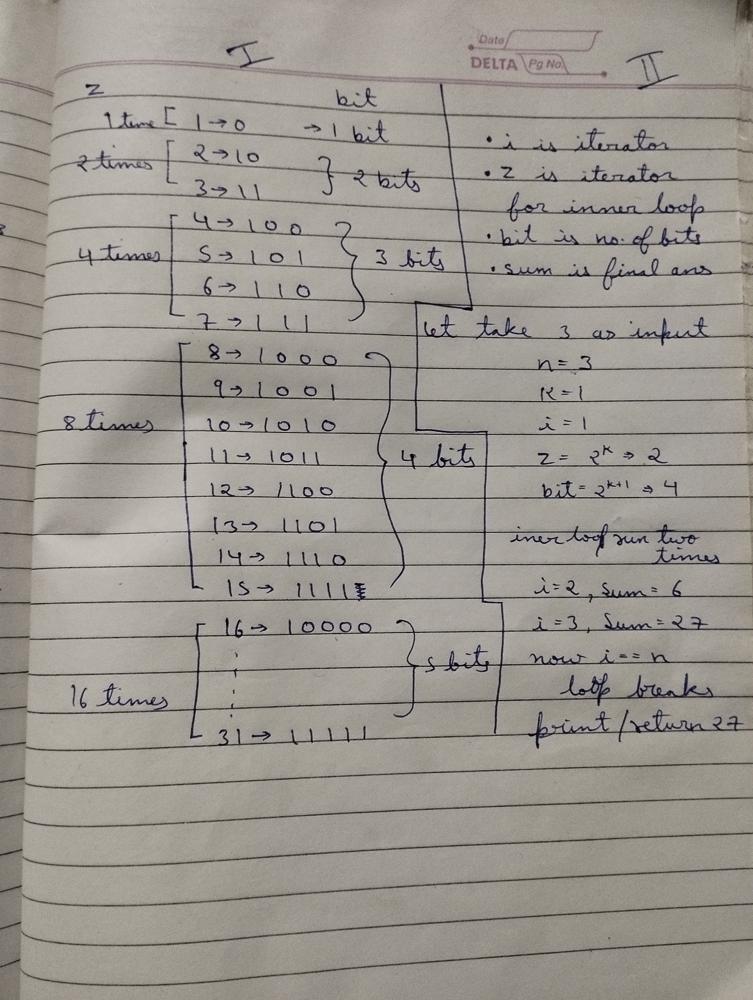 I
Date
DELTA Pg No.
II
z
bit
1 time [ 1→0 →1 bit
2 times [ 2→10
3→11 } 2 bits
4→100
4 times 5→101 } 3 bits
6→110
7→111
8→1000
9→1001
8 times 10→1010
11→1011 4 bits
12→1100
13→1101
14→1110
15→1111
16→10000
5 bits
16 times
31→11111
• i is iterator
• z is iterator
for inner loop
• bit is no. of bits
• sum is final ans
let take 3 as input
n=3
K=1
i=1
z= 2^K → 2
bit= 2^K+1 → 4
iner loof run two
times
i=2, Sum=6
i=3, Sum=27
now i==n
loop breaks
print/return 27